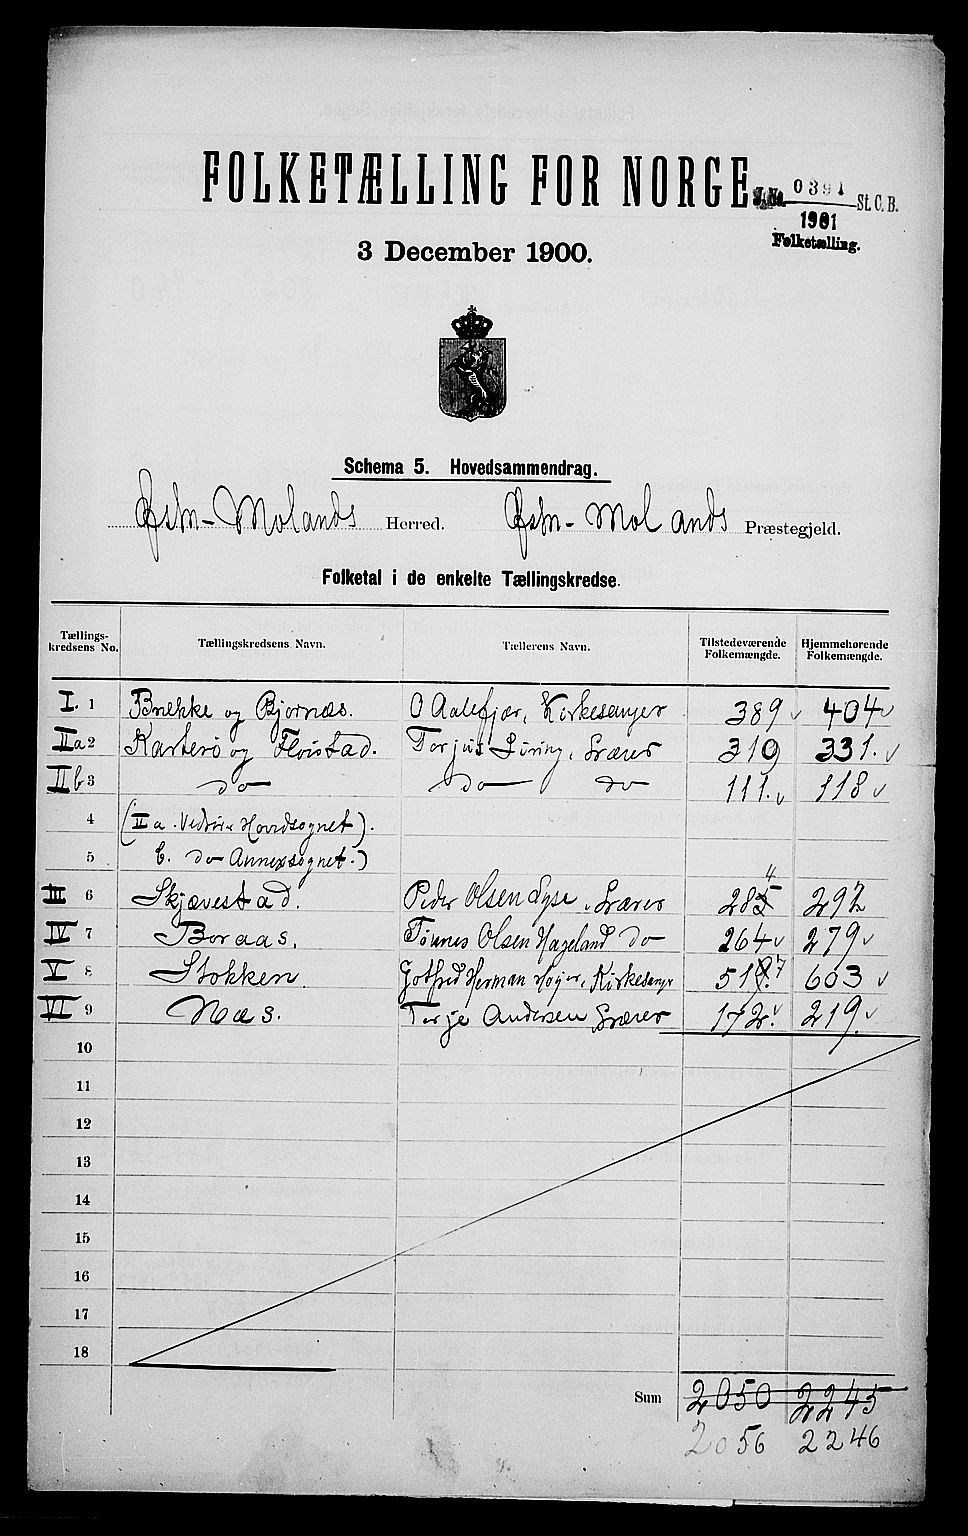 FOLKETÆLLING FOR NORGE
J. No. 0391 St. C. B.
1901
Folketælling.
3 December 1900.
Schema 5. Hovedsammendrag.
Østre-Molands Herred. Østre-Molands Præstegjeld.
Folketal i de enkelte Tællingskredse.
Tællings-kredsens No. Tællingskredsens Navn. Tællerens Navn. Tilstedeværende Folkemængde. Hjemmehørende Folkemængde.
I. 1 Brekke og Bjornæs. O Aalefjær, Kirkesanger 389 404
IIa 2 og Flovstad. Torjus Lærer 319 331.
IIb 3 do do do 111. 118
4 (IIa. Hovedsognet).
5 b. do Annexsognet.)
III 6 Skjævestad. Peder Olsen Lyse, Lærer 284 292
IV 7 Boraas. Tønnes Olsen Hageland do 264 279
V 8 Stokken. Gotfred Herman Høyer, Kirkesanger 517 603
VI 9 Næs. Terje Andersen Lærer 172. 219.
10
11
12
13
14
15
16
17
18
Sum 2050 2245
2056 2246